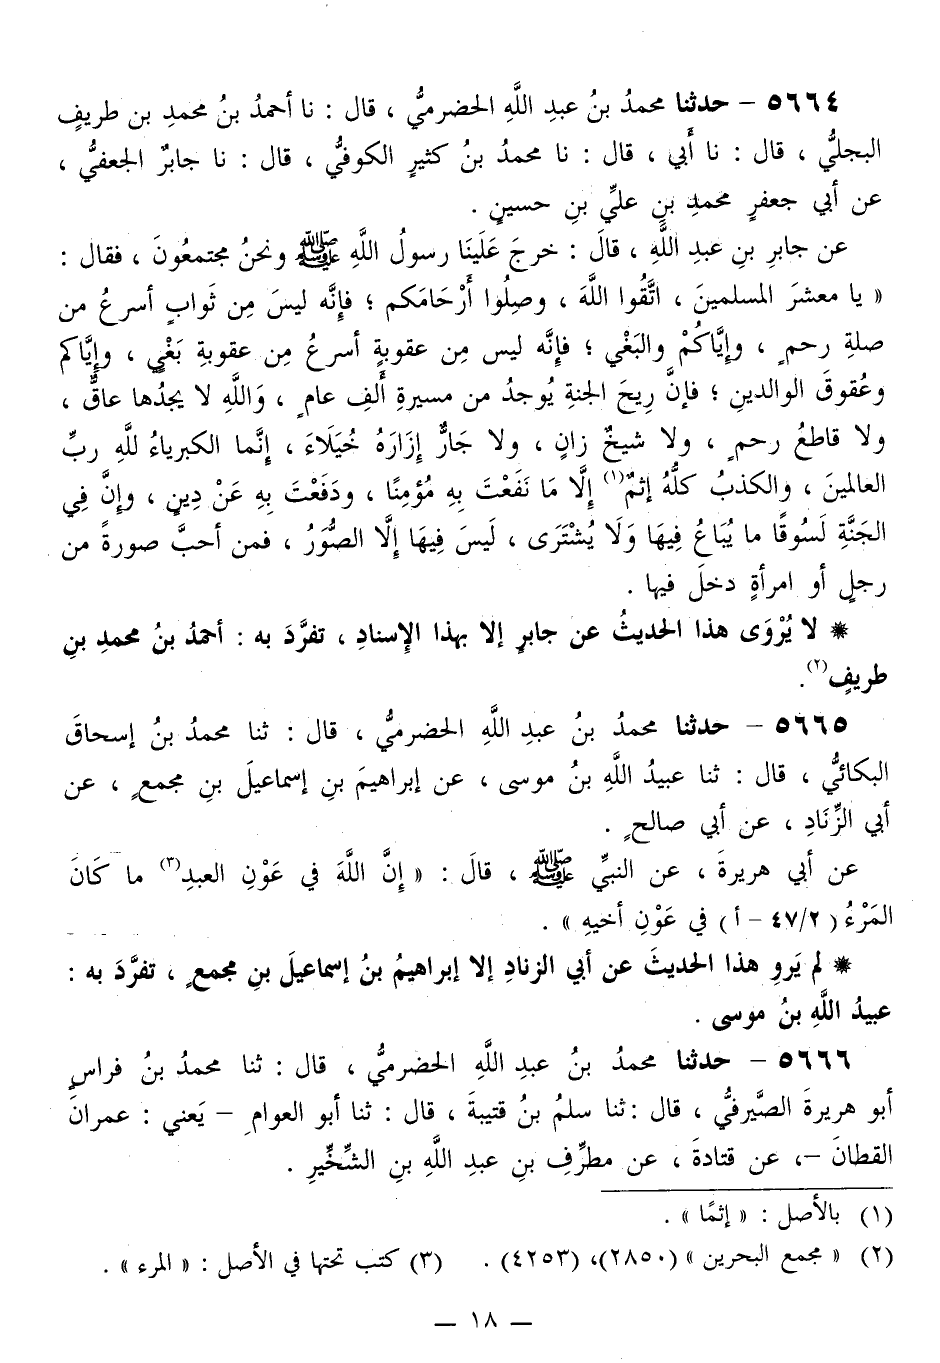 ٥٦٦٤ – حدثنا محمدُ بنُ عبدِ اللَّهِ الحضرميُّ ، قال : نا أحمدُ بنُ محمدِ بن طريفٍ
البجليُّ ، قال : نا أَبي ، قال : نا محمدُ بنُ كثيرٍ الكوفيُّ ، قال : نا جابرٌ الجعفيُّ ،
عن أبي جعفرٍ محمدِ بنِ عليِّ بنِ حسينٍ .
عن جابرِ بنِ عبدِ اللَّهِ ، قالَ : خرجَ عَلَينَا رسولُ اللَّهِ ﷺ ونحنُ مجتمعُونَ ، فقال :
« يا معشرَ المسلمينَ ، اتَّقُوا اللَّهَ ، وصِلُوا أَرْحَامَكم ؛ فإنَّه ليسَ مِن ثَوابٍ أسرعُ من
صلةِ رحمٍ ، وإيَّاكُمْ والبَغْي ؛ فإنَّه ليس مِن عقوبةٍ أسرعُ مِن عقوبةِ بَغْيٍ ، وإيَّاكم
وعُقوقَ الوالدينِ ؛ فإنَّ رِيحَ الجنةِ يُوجدُ من مسيرةِ أَلفِ عامٍ ، وَاللَّهِ لا يجدُها عاقٌّ ،
ولا قاطعُ رحمٍ ، ولا شيخٌ زانٍ ، ولا جَارٌّ إِزَارَهُ خُيَلَاءَ ، إِنَّما الكبرياءُ للَّهِ ربِّ
العالمينَ ، والكذبُ كلُّهُ إثمٌ(١) إِلَّا مَا نَفَعْتَ بِهِ مُؤمِنًا ، ودَفَعْتَ بِهِ عَنْ دِينٍ ، وإِنَّ فِي
الجَنَّةِ لَسُوقًا ما يُبَاعُ فِيهَا وَلَا يُشْتَرَى ، لَيسَ فِيهَا إِلَّا الصُّوَرُ ، فمن أحبَّ صورةً من
رجلٍ أو امرأةٍ دخلَ فيها .
* لا يُرْوَى هذا الحديثُ عن جابرٍ إلا بهذا الإِسنادِ ، تفرَّدَ به : أحمدُ بنُ محمدِ بنِ
طريفٍ(٢).
٥٦٦٥ – حدثنا محمدُ بنُ عبدِ اللَّهِ الحضرميُّ ، قال : ثنا محمدُ بنُ إسحاقَ
البكائيُّ ، قال : ثنا عبيدُ اللَّهِ بنُ موسى ، عن إبراهيمَ بنِ إسماعيلَ بنِ مجمعٍ ، عن
أبي الزِّنَادِ ، عن أبي صالحٍ .
عن أبي هريرةَ ، عن النبيِّ ﷺ ، قالَ : « إِنَّ اللَّهَ في عَوْنِ العبدِ(٣) ما كَانَ
المَرْءُ ( ٤٧/٢ – أ ) في عَوْنِ أخيهِ » .
* لم يَروِ هذا الحديثَ عن أبي الزنادِ إلا إبراهيمُ بنُ إسماعيلَ بنِ مجمعٍ ، تفرَّدَ به :
عبيدُ اللَّهِ بنُ موسى .
٥٦٦٦ – حدثنا محمدُ بنُ عبدِ اللَّهِ الحضرميُّ ، قال : ثنا محمدُ بنُ فراسٍ
أبو هريرةَ الصَّيرفيُّ ، قال : ثنا سلمُ بنُ قتيبةَ ، قال : ثنا أبو العوامِ – يَعني : عمرانَ
القطانَ –، عن قتادةَ ، عن مطرِّفِ بنِ عبدِ اللَّهِ بنِ الشِّخِّيرِ .
(١) بالأصل : « إثمًا » .
(٢) « مجمع البحرين » (٢٨٥٠)، (٤٢٥٣) . (٣) كتب تحتها في الأصل : « المرء » .
— ١٨ —